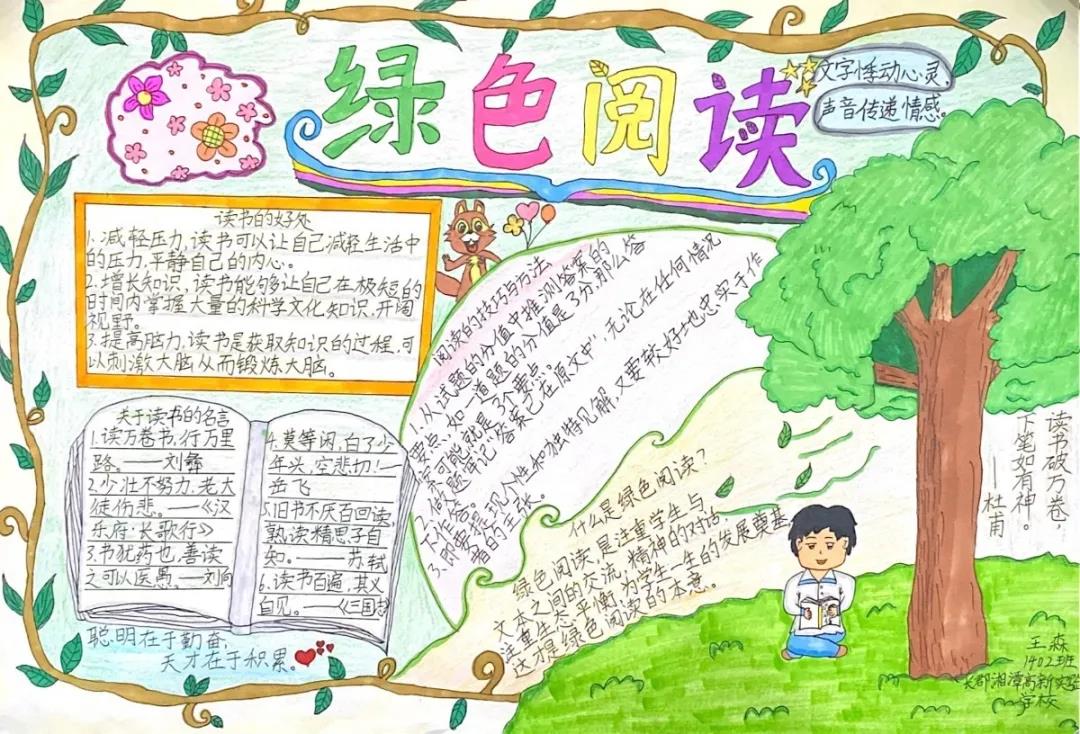 绿色阅读
文字悸动心灵,
声音传递情感。
读书的好处
1.减轻压力,读书可以让自己减轻生活中
的压力,平静自己的内心。
2.增长知识,读书能够让自己在极短的
时间内掌握大量的科学文化知识,开阔
视野。
3.提高脑力,读书是获取知识的过程,可
以刺激大脑从而锻炼大脑。
阅读的技巧与方法
1.从试题的分值中推测答案的
要点,如一道题的分值是3分,那么答
案可能就是3个要点。
2.做题牢记"答案已在原文中",无论在任何情况
下作答。
3.即要提现个性和独特见解,又要较好士也忠实于作
者的主张。
关于读书的名言
1.读万卷书,行万里
路。——刘彝
2.少壮不努力,老大
徒伤悲。——《汉
乐府·长歌行》
3.书犹药也,善读
之可以医愚。——刘向
4.莫等闲,白了少
年头,空悲切!——
岳飞
5.旧书不厌百回读,
熟读精思子自
知。——苏轼
6.读书百遍,其义
自见。——《三国志
聪明在于勤奋,
天才在于积累。
什么是绿色阅读?
绿色阅读,是注重学生与
文本之间的交流,精神的对话,
注重生态平衡,为学生一生的发展奠基,
这才是绿色阅读的本意。
读书破万卷,
下笔如有神。
——杜甫
王森
1402班
长郡湘潭高新实验
学校